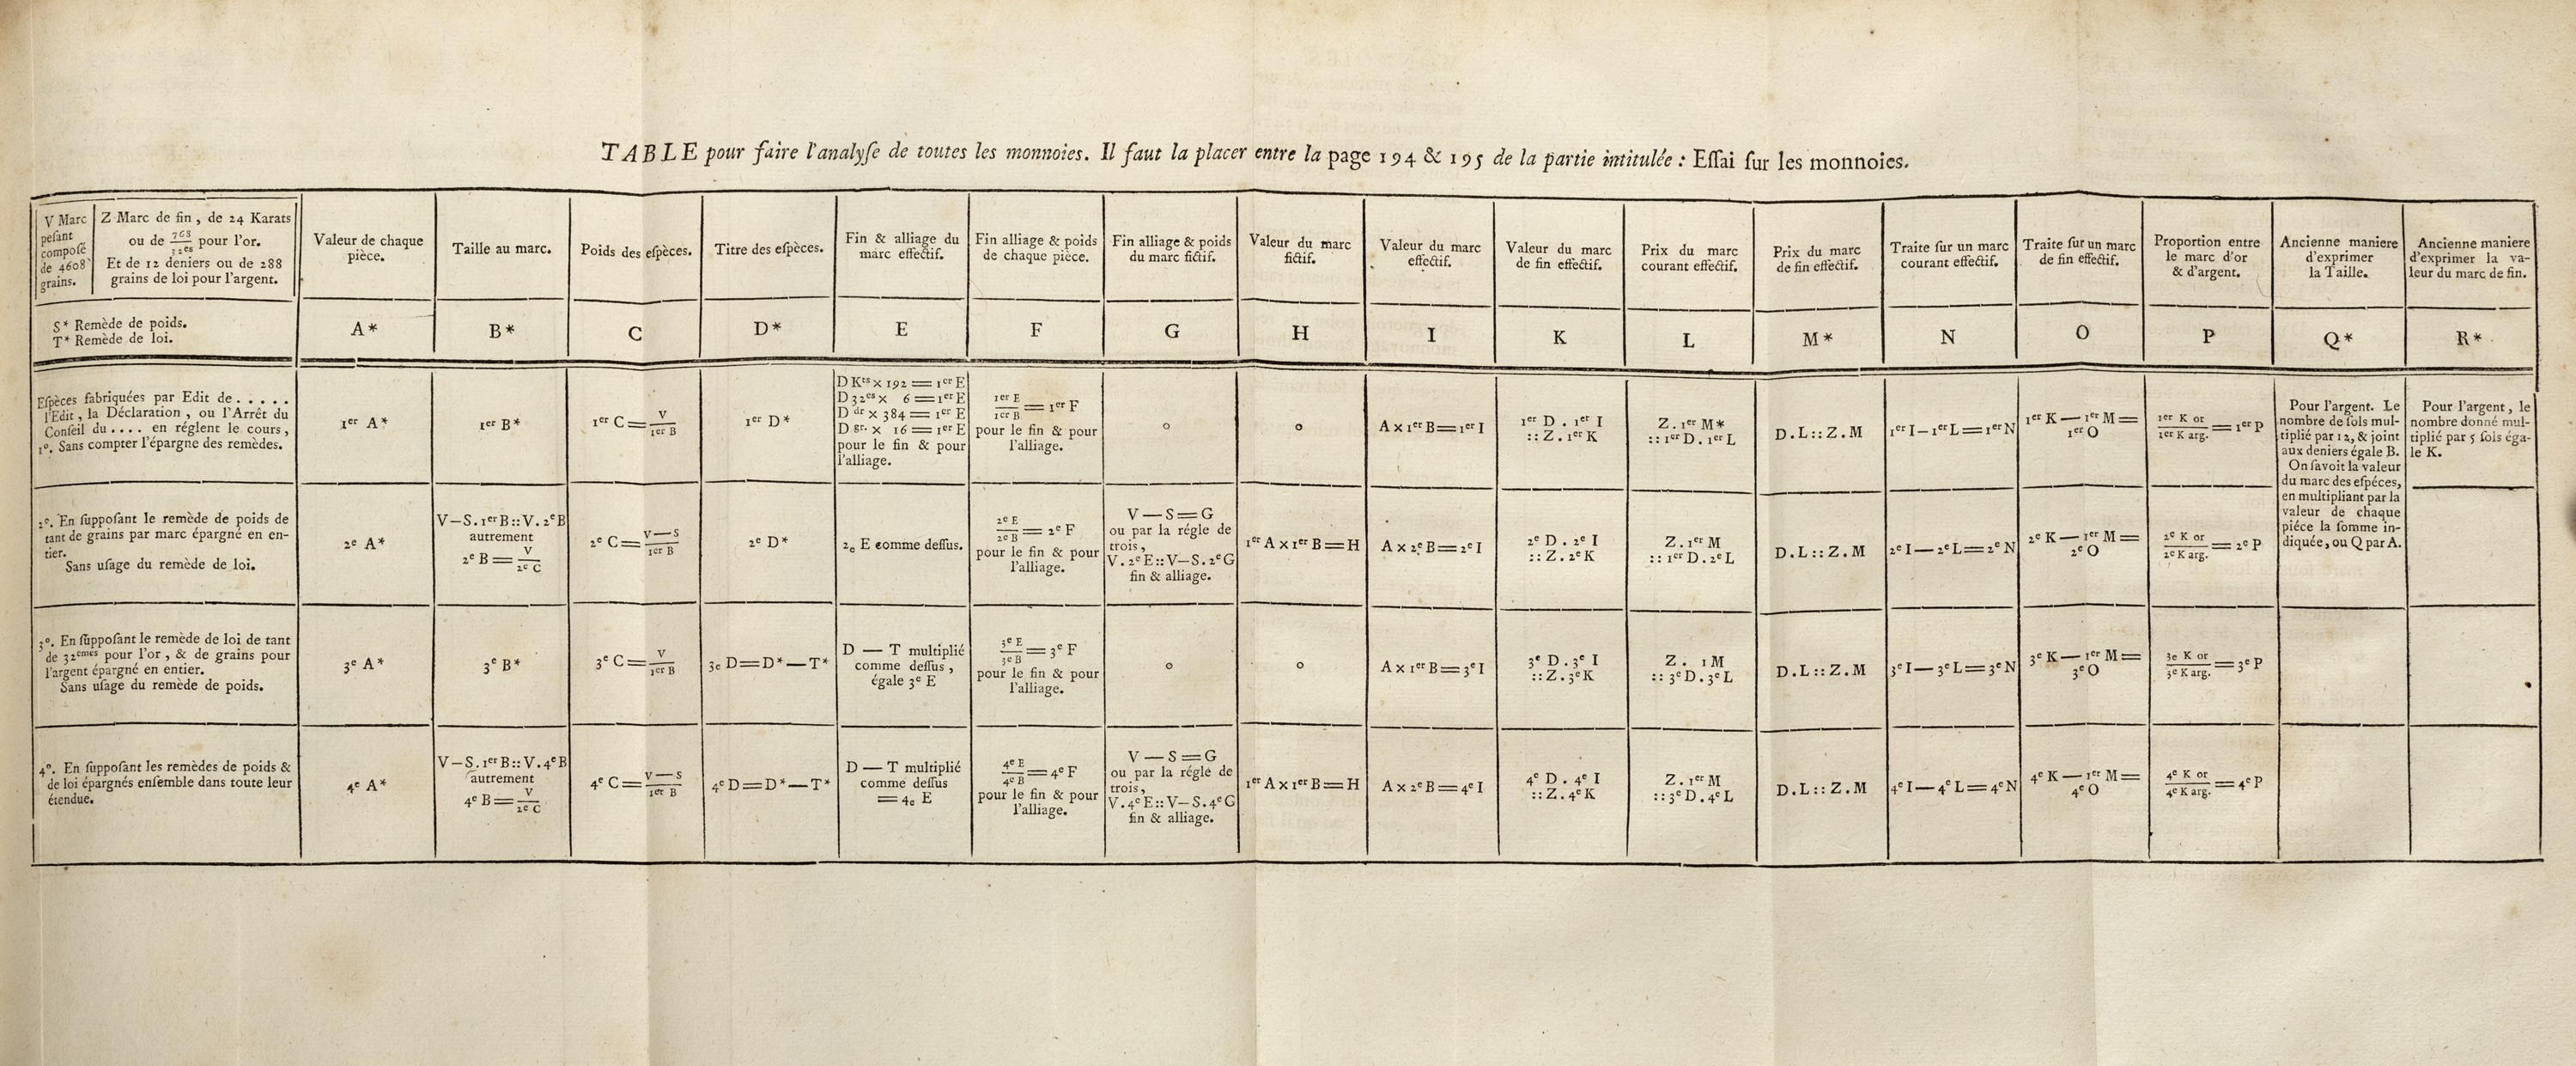 TABLE pour faire l'analyſe de toutes les monnoies. Il faut la placer entre la page 194 & 195 de la partie intitulée : Eſſai ſur les monnoies.
V Marc
peſant
compoſé
de 4608
grains.
Z Marc de fin, de 24 Karats
ou de 768/32es pour l'or.
Et de 12 deniers ou de 288
grains de loi pour l'argent.
Valeur de chaque
pièce.
Taille au marc.
Poids des eſpèces.
Titre des eſpèces.
Fin & alliage du
marc effectif.
Fin alliage & poids
de chaque pièce.
Fin alliage & poids
du marc fictif.
Valeur du marc
fictif.
Valeur du marc
effectif.
Valeur du marc
de fin effectif.
Prix du marc
courant effectif.
Prix du marc
de fin effectif.
Traite ſur un marc
courant effectif.
Traite ſur un marc
de fin effectif.
Proportion entre
le marc d'or
& d'argent.
Ancienne maniere
d'exprimer
la Taille.
Ancienne maniere
d'exprimer la va-
leur du marc de fin.
S* Remède de poids.
T* Remède de loi.
A*
B*
C
D*
E
F
G
H
I
K
L
M*
N
O
P
Q*
R*
Eſpèces fabriquées par Edit de . . . . .
l'Edit, la Déclaration, ou l'Arrêt du
Conſeil du . . . . en réglent le cours,
1°. Sans compter l'épargne des remèdes.
1er A*
1er B*
1er C = V/1er B
1er D*
D Kts × 192 = 1er E
D 32es × 6 = 1er E
D dr × 384 = 1er E
D gr. × 16 = 1er E
pour le fin & pour
l'alliage.
1er E/1er B = 1er F
pour le fin & pour
l'alliage.
0
0
A × 1er B = 1er I
1er D . 1er I
:: Z . 1er K
Z . 1er M*
:: 1er D . 1er L
D . L :: Z . M
1er I — 1er L = 1er N
1er K — 1er M =
1er O
1er K or/1er K arg. = 1er P
Pour l'argent. Le
nombre de ſols mul-
tiplié par 12, & joint
aux deniers égale B.
On ſavoit la valeur
du marc des eſpéces,
en multipliant par la
valeur de chaque
piéce la ſomme in-
diquée, ou Q par A.
Pour l'argent, le
nombre donné mul-
tiplié par 5 ſols éga-
le K.
2e. En ſuppoſant le remède de poids de
tant de grains par marc épargné en en-
tier.
Sans uſage du remède de loi.
2e A*
V — S . 1er B :: V . 2e B
autrement
2e B = V/2e C
2e C = V — S/1er B
2e D*
2e E comme deſſus.
2e E/2e B = 2e F
pour le fin & pour
l'alliage.
V — S = G
ou par la régle de
trois,
V . 2e E :: V — S . 2e G
fin & alliage.
1er A × 1er B = H
A × 2e B = 2e I
2e D . 2e I
:: Z . 2e K
Z . 1er M
:: 1er D . 2e L
D . L :: Z . M
2e I — 2e L = 2e N
2e K — 1er M =
2e O
2e K or/2e K arg. = 2e P
3°. En ſuppoſant le remède de loi de tant
de 32emes pour l'or, & de grains pour
l'argent épargné en entier.
Sans uſage du remède de poids.
3e A*
3e B*
3e C = V/1er B
3e D = D* — T*
D — T multiplié
comme deſſus,
égale 3e E
3e E/3e B = 3e F
pour le fin & pour
l'alliage.
0
0
A × 1er B = 3e I
3e D . 3e I
:: Z . 3e K
Z . 1 M
:: 3e D . 3e L
D . L :: Z . M
3e I — 3e L = 3e N
3e K — 1er M =
3e O
3e K or/3e K arg. = 3e P
4°. En ſuppoſant les remèdes de poids &
de loi épargnés enſemble dans toute leur
étendue.
4e A*
V — S . 1er B :: V . 4e B
autrement
4e B = V/2e C
4e C = V — S/1er B
4e D = D* — T*
D — T multiplié
comme deſſus
= 4e E
4e E/4e B = 4e F
pour le fin & pour
l'alliage.
V — S = G
ou par la régle de
trois,
V . 4e E :: V — S . 4e G
fin & alliage.
1er A × 1er B = H
A × 2e B = 4e I
4e D . 4e I
:: Z . 4e K
Z . 1er M
:: 3e D . 4e L
D . L :: Z . M
4e I — 4e L = 4e N
4e K — 1er M =
4e O
4e K or/4e K arg. = 4e P